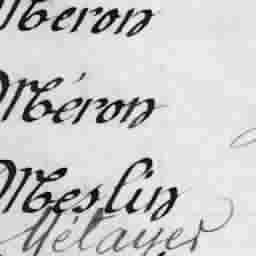 Meron
Méron
Meslin
Mélayer